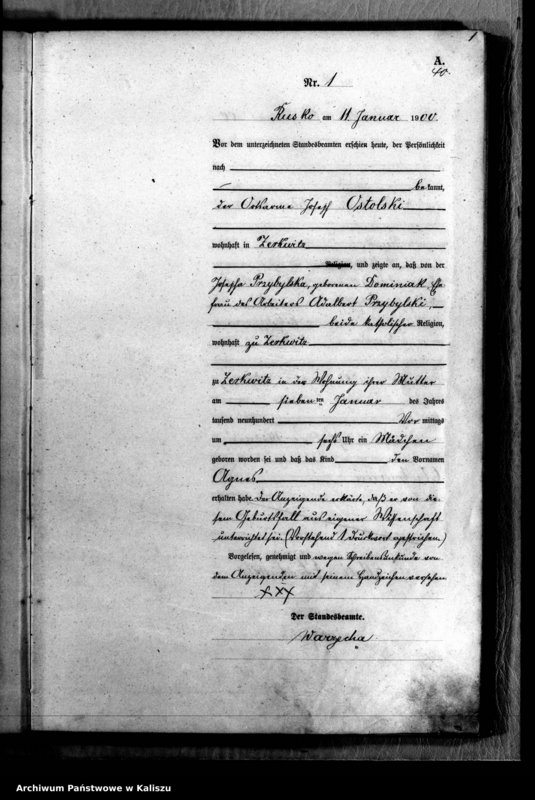 1
A.
40.
Nr. 1
Rusko am 11. Januar 1900.
Vor dem unterzeichneten Standesbeamten erschien heute, der Persönlichkeit
nach
bekannt,
der Ortsarme Joseph Ostolski
wohnhaft in Zerkwitz
Religion, und zeigte an, daß von der
Josepha Przybylska, geborenen Dominiak, Ehe
frau des Arbeiters Adalbert Przybylski,
beide katholischer Religion,
wohnhaft zu Zerkwitz
zu Zerkwitz in der Wohnung ihrer Mutter
am siebenten Januar des Jahres
tausend neunhundert Vormittags
um sechs Uhr ein Mädchen
geboren worden sei und daß das Kind den Vornamen
Agnes
erhalten habe. Der Anzeigende erklärte, daß er von die
sem Geburtsfall aus eigener Wissenschaft
unterrichtet sei. (Vorstehend 1 Druckwort gestrichen.)
Vorgelesen, genehmigt und wegen Schreibensunkunde von
dem Anzeigenden mit seinem Handzeichen versehen
+++
Der Standesbeamte.
Warzecha
Archiwum Państwowe w Kaliszu